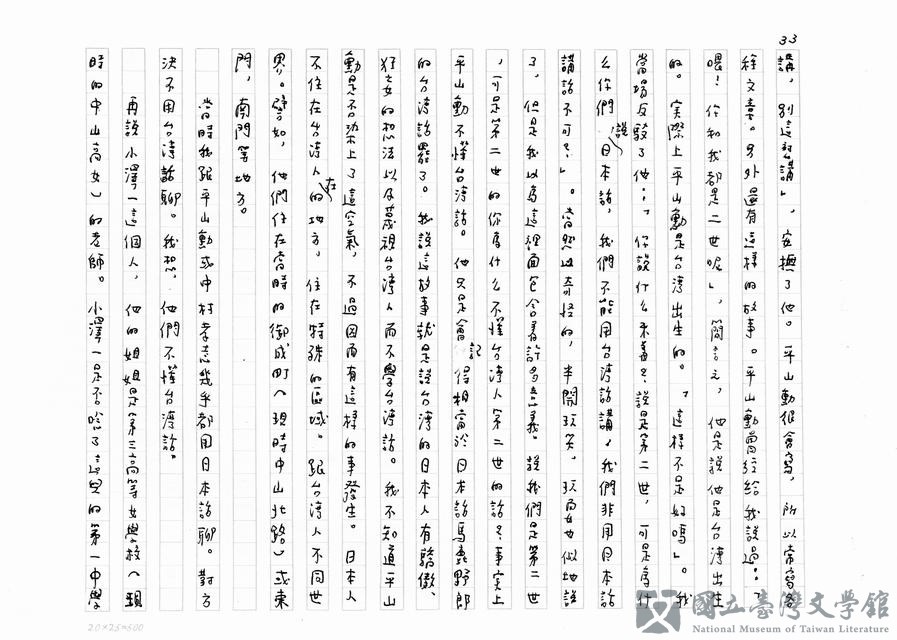 33
講，別這樣講」，安撫了他。平山勳很會寫，所以常寫各
種文章。另外還有這樣的故事。平山勳曾經給我說過：「
喂！你和我都是二世呢」，簡言之，他是說他是台灣出生
的。實際上平山勳是台灣出生的。「這樣不是好嗎」。我
當場反駁了他：「你說什么来着？說是第二世，可是為什
么你們說日本話，我們不能用台灣話講，我們非用日本話
講話不可？」。當然以奇怪的，半開玩笑，玩耍也似地說
了，但是我以為這裡面包含着許多意義。說我們是第二世
，可是第二世的你為什么不懂台灣人第二世的話？事实上
平山勳不懂台灣話。他只是會記得相當於日本話馬鹿野郎
的台灣話罷了。我說這故事就是說台灣的日本人有驕傲、
狂妄的想法以及蔑視台灣人而不學台灣話。我不知道平山
勳是否染上了這空氣，不過因而有這樣的事發生。日本人
不住在台灣人在的地方，住在特殊的區域。跟台灣人不同世
界。譬如，他們住在當時的御成町（現時中山北路）或東
門，南門等地方。
當時我跟平山勳或中村孝志幾乎都用日本話聊。對方
決不用台灣話聊。我想，他們不懂台灣話。
再說小澤一這個人，他的姐姐是第三高等女學校（現
時的中山高女）的老師。小澤一是否唸了這里的第一中學
20×25=500
國立臺灣文學館
National Museum of Taiwan Literature